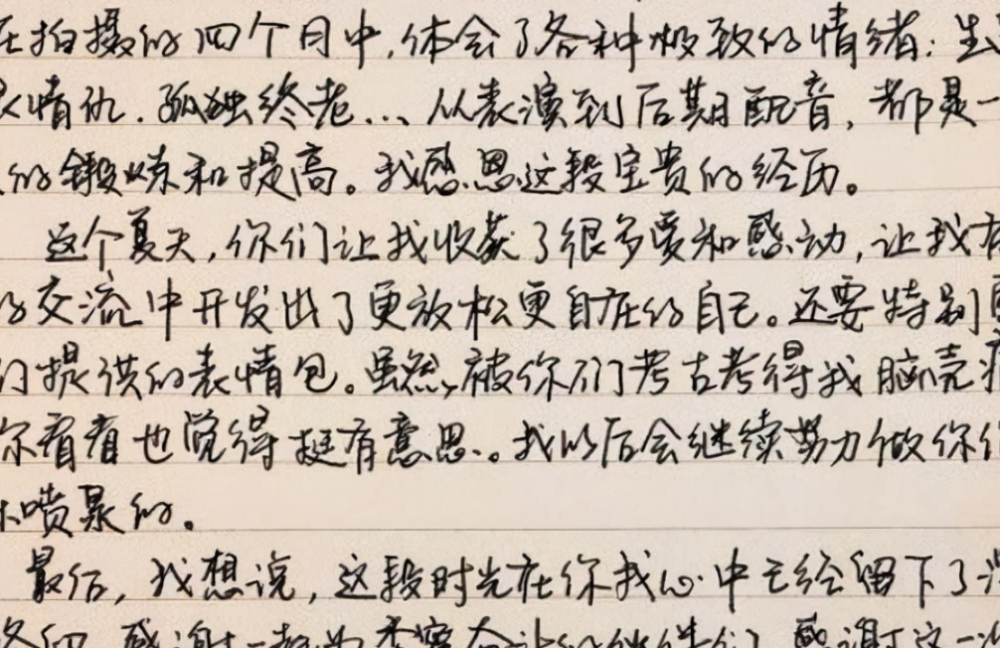 在拍摄的四个月中，体会了各种极致的情绪：生
情仇．孤独终老... 从表演到后期配音，都是一
的锻炼和提高。我感恩这段宝贵的经历。
这个夏天，你们让我收获了很多爱和感动，让我在
的交流中开发出了更放松更自在的自己。还要特别
们提供的表情包。虽然，被你们考古考得我脑壳
尔看着也觉得挺有意思。我以后会继续努力做你们
喷泉的。
最后，我想说，这段时光在你我心中已经留下了
感谢一都为 感谢这一